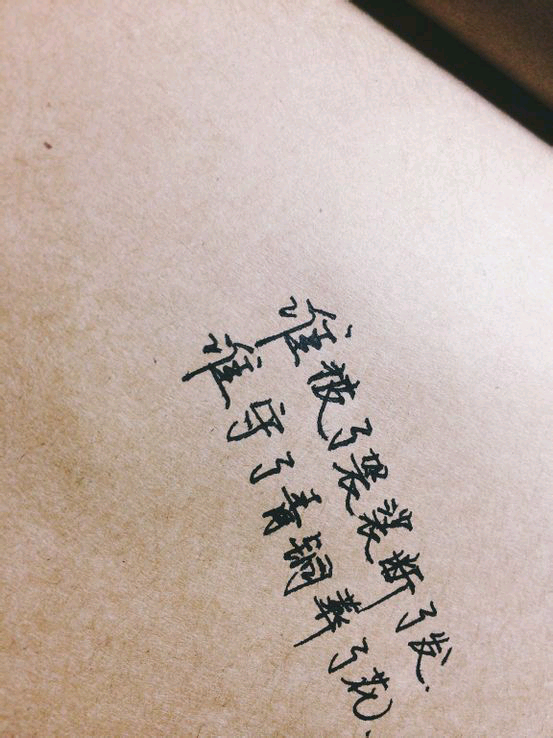 谁被了袈裟断了发.
谁守了青铜葬了花.